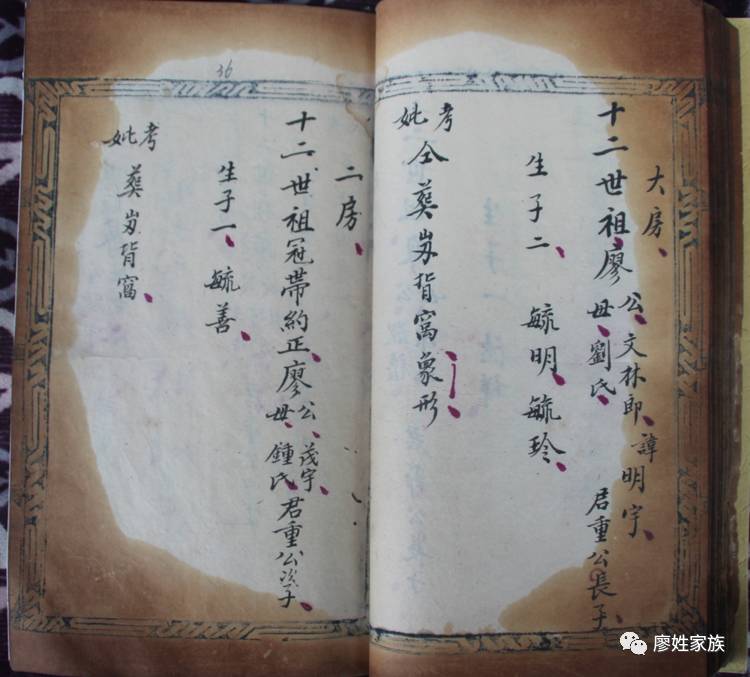 大房、
十二世祖廖公、文林郎、諱明宇、
母、劉氏、
君重公長子、
生子二 毓明、毓玲、
考
妣 仝葬㟇背窩象形
二房、
十二世祖冠帶約正、廖公、茂宇、
母、鍾氏、君重公次子、
生子一、毓善、
考
妣 葬㟇背窩、
36
廖姓家族